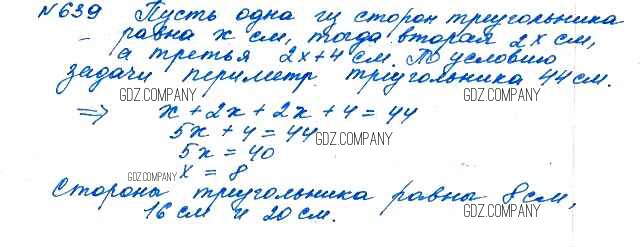 №639 Пусть одна из сторон треугольника
равна x см, тогда вторая 2x см,
а третья 2x+4 см. По условию
задачи периметр треугольника 44 см.
GDZ.COMPANY GDZ.COMPANY
⇒ x+2x+2x+4=44
5x+4=44 GDZ.COMPANY
5x=40
GDZ.COMPANY x=8
Стороны треугольника равны 8 см,
16 см и 20 см. GDZ.COMPANY